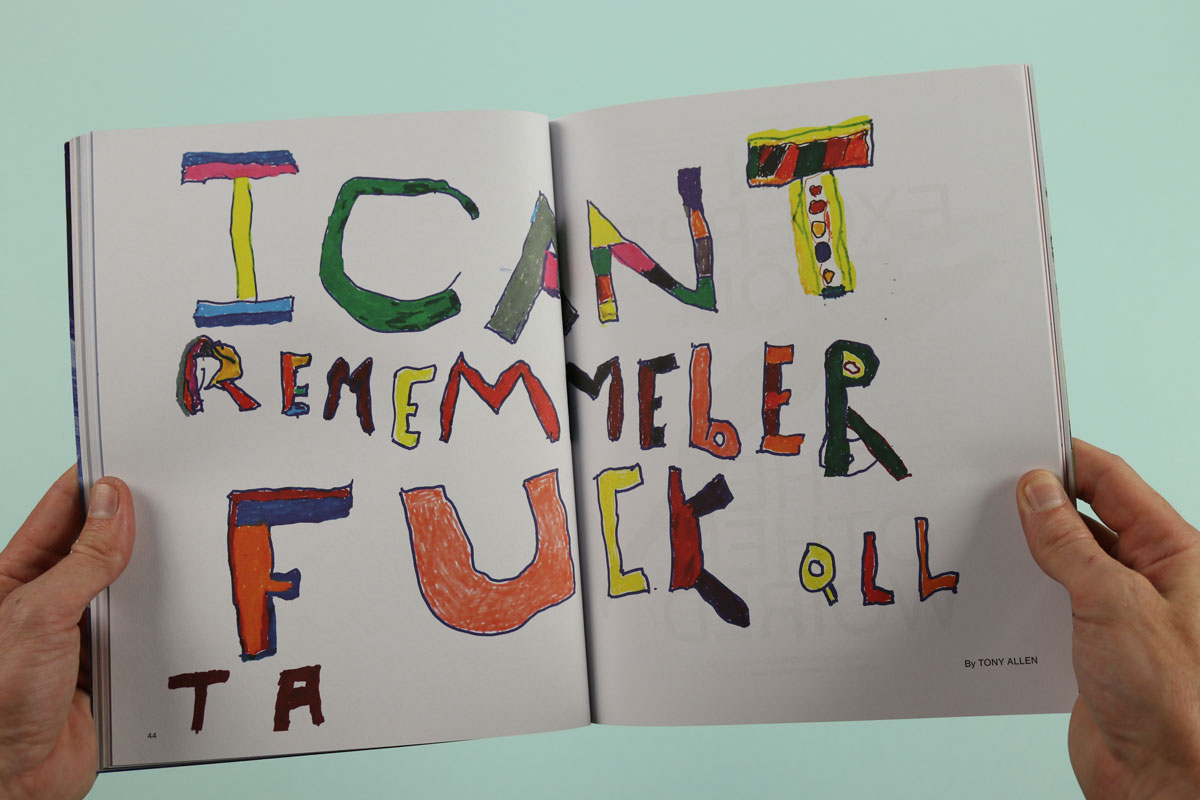 I CANT
REMEMMEbER
FUCK aLL
TA
By TONY ALLEN
44